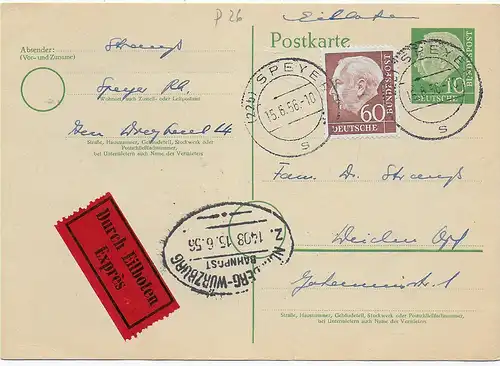 P 26
Eilboten
Absender:
(Vor- und Zuname)
Postkarte
Speyer Rh.
Wohnort, auch Zustell- oder Leitpostamt
Straße, Hausnummer, Gebäudeteil, Stockwerk oder
Postschließfachnummer,
bei Untermietern auch Name des Vermieters
(22b) SPEYER
15.6.56-10
s
60
DEUTSCHE
BUNDESPOST
15.6.56
s
10
DEUTSCHE
BUNDESPOST
Fam. Dr.
Weiden Opf
Straße, Hausnummer, Gebäudeteil, Stockwerk oder Postschließfachnummer,
bei Untermietern auch Name des Vermieters
Z. 1408 15.6.56
BAHNPOST
NÜRNBERG-WÜRZBURG
Durch Eilboten
Exprès